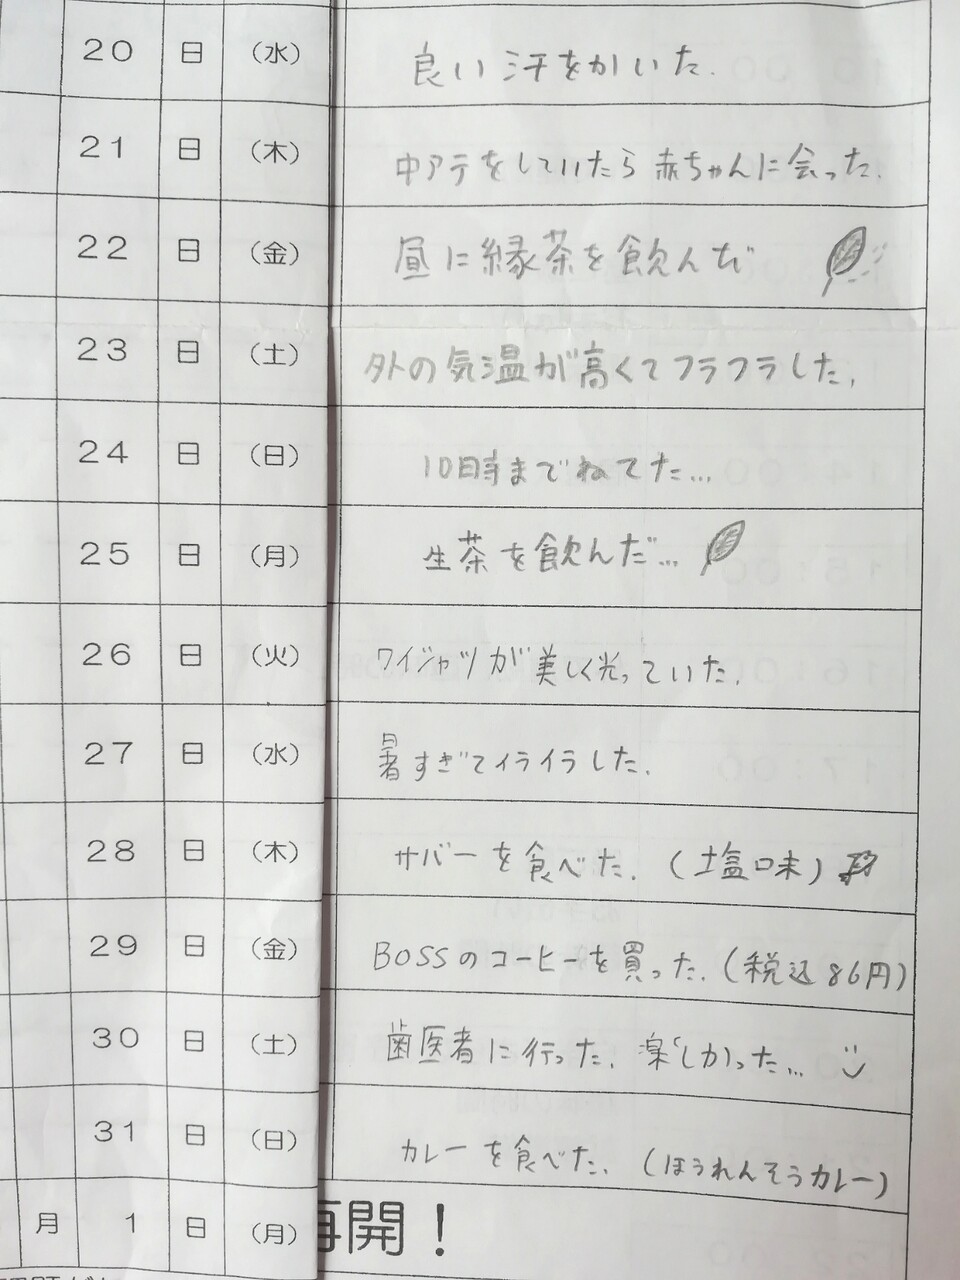 20 日 (水) 良い汗をかいた.
21 日 (木) 中アテをしていたら赤ちゃんに会った.
22 日 (金) 昼に縁茶を飲んだ
23 日 (土) 外の気温が高くてフラフラした.
24 日 (日) 10時までねてた...
25 日 (月) 生茶を飲んだ...
26 日 (火) ワイシャツが美しく光っていた.
27 日 (水) 暑すぎてイライラした.
28 日 (木) サバーを食べた. (塩口味)
29 日 (金) BOSSのコーヒーを買った. (税込86円)
30 日 (土) 歯医者に行った. 楽しかった...
31 日 (日) カレーを食べた. (ほうれんそうカレー)
月 1 日 (月) 開!